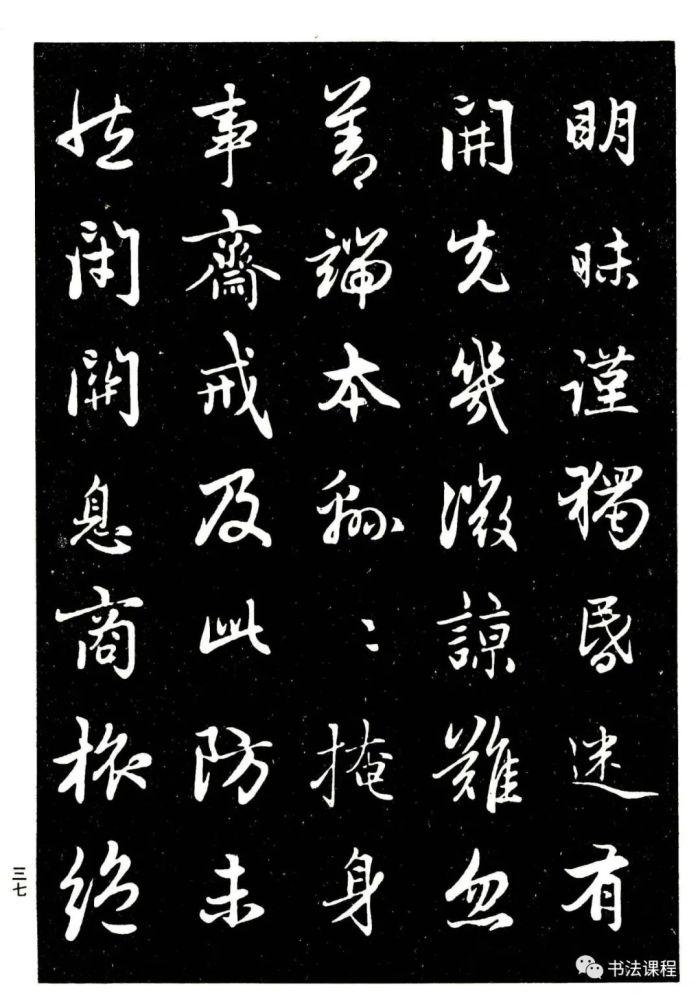 明昧謹獨昏迷有
開先幾微諒難忽
善端本緜〻掩身
事齋戒及此防未
然閉關息商旅絶
三七
书法课程